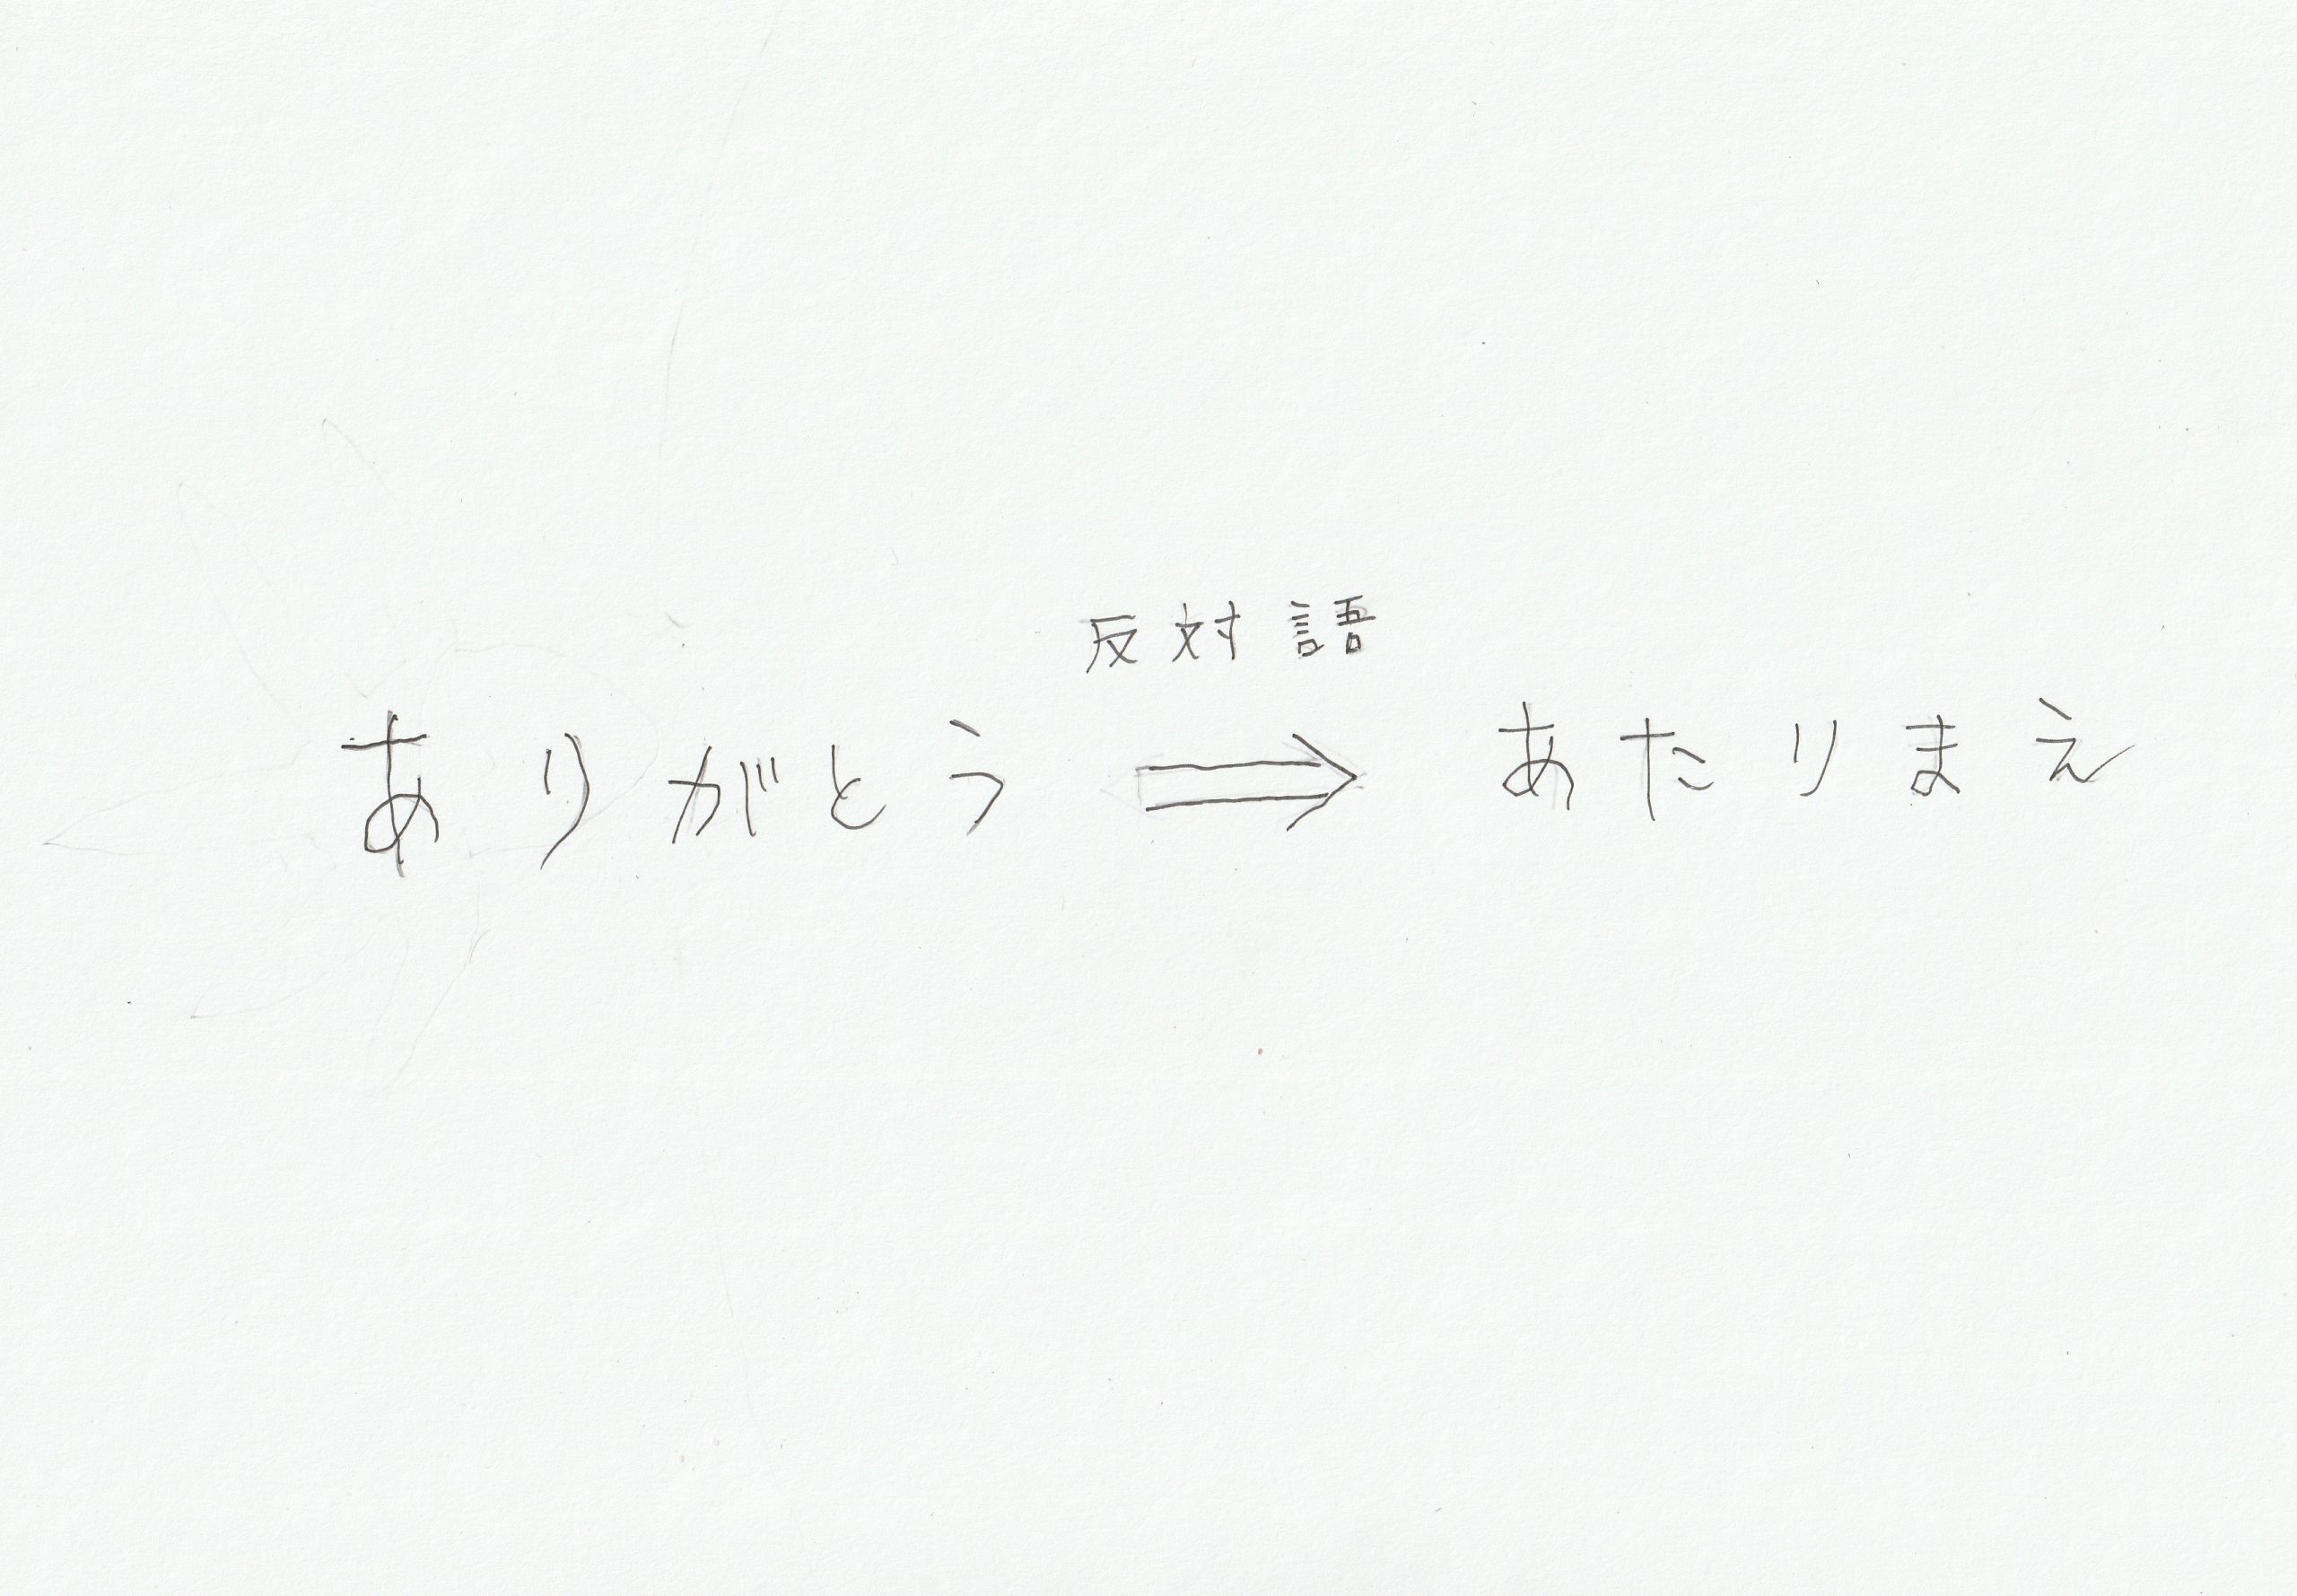 反対語
ありがとう ⇒ あたりまえ